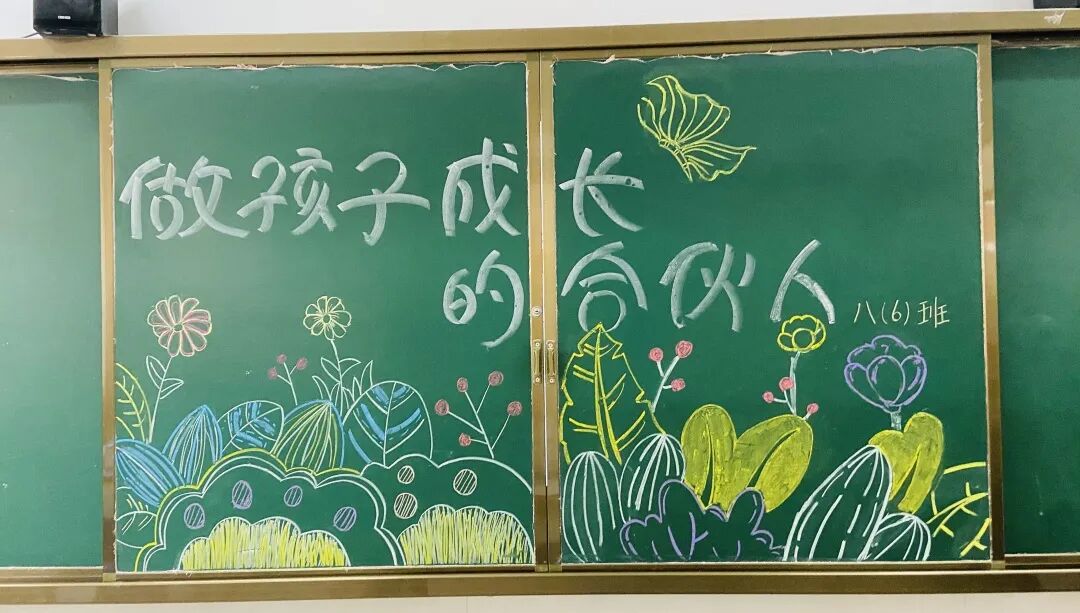 做孩子成长
的合伙人
八(6)班